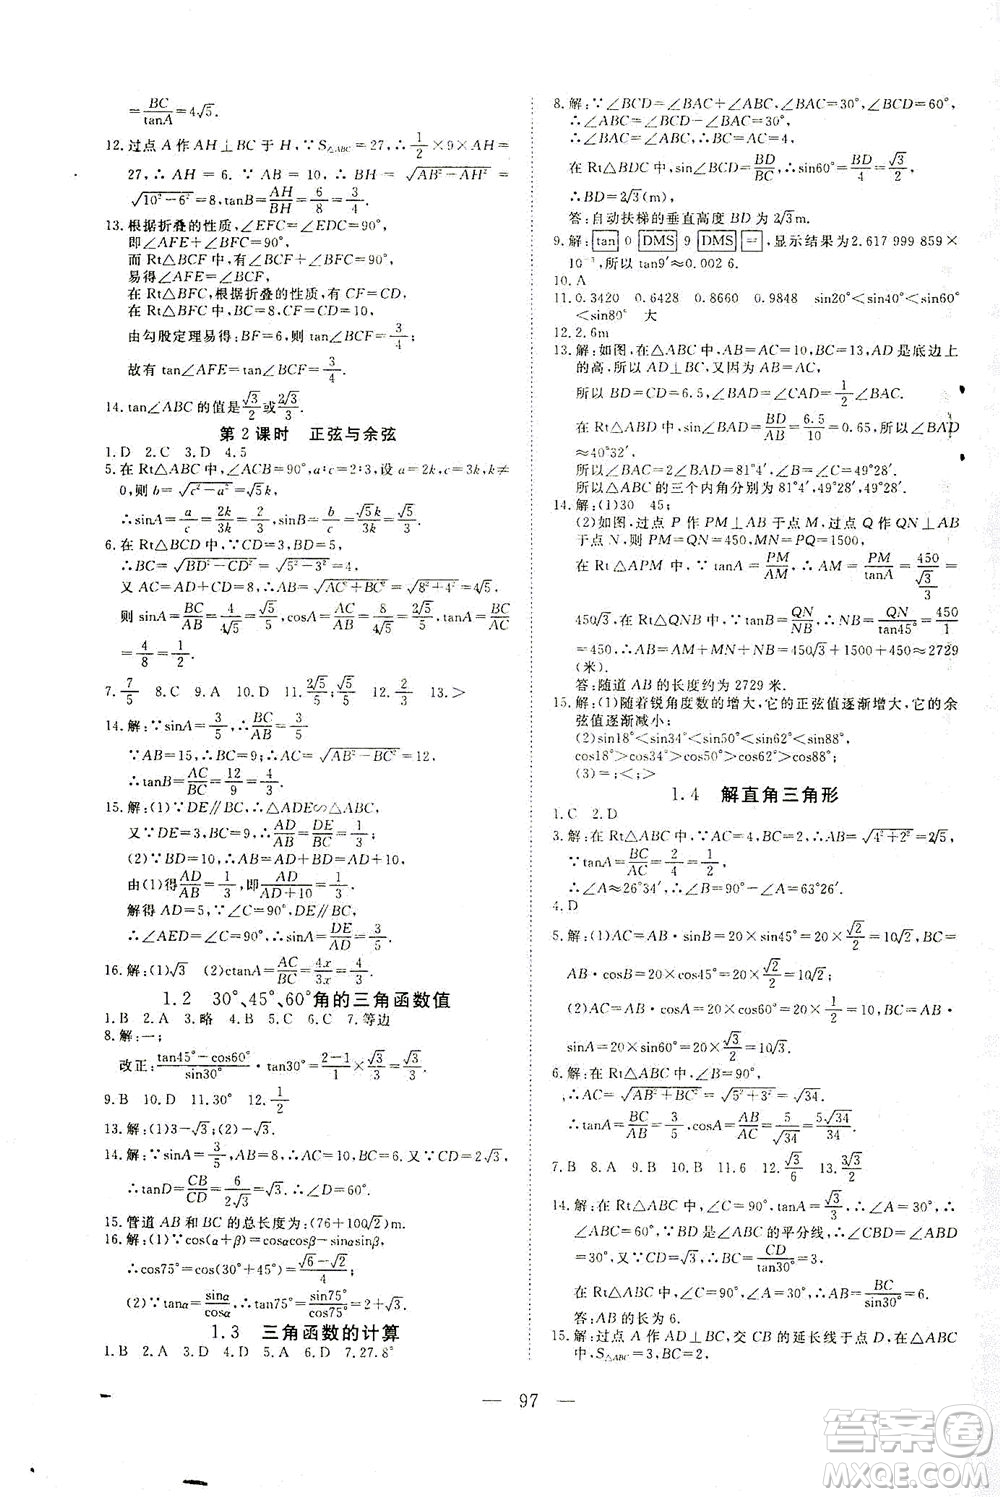 =BC/tanA=4√5.
12.过点 A 作 AH⊥BC 于 H,∵S△ABC=27,∴1/2×9×AH=
27,∴AH=6.∵AB=10,∴BH=√(AB²-AH²)=
√(10²-6²)=8,tanB=AH/BH=6/8=3/4.
13.根据折叠的性质,∠EFC=∠EBC=90°,
即∠AFE+∠BFC=90°,
而 Rt△BCF 中,有∠BCF+∠BFC=90°,
易得∠AFE=∠BCF,
在 Rt△BFC,根据折叠的性质,有 CF=CD,
在 Rt△BFC 中,BC=8,CF=CD=10,
由勾股定理易得:BF=6,则 tan∠BCF=3/4;
故有 tan∠AFE=tan∠BCF=3/4.
14.tan∠ABC 的值是√3/2或2√3/3.
第 2 课时 正弦与余弦
1.D 2.C 3.D 4.5
5.在 Rt△ABC 中,∠ACB=90°,a:c=2:3,设 a=2k,c=3k,k≠
0,则 b=√(c²-a²)=√5k,
∴sinA=a/c=2k/3k=2/3,sinB=b/c=√5k/3k=√5/3.
6.在 Rt△BCD 中,∵CD=3、BD=5,
∴BC=√(BD²-CD²)=√(5²-3²)=4,
又 AC=AD+CD=8,∴AB=√(AC²+BC²)=√(8²+4²)=4√5,
则 sinA=BC/AB=4/4√5=√5/5,cosA=AC/AB=8/4√5=2√5/5,tanA=BC/AC=
4/8=1/2.
7.7/5 8.C 9.A 10.D 11.2√5/5 12.2/3 13.>
14.解:∵sinA=3/5,∴BC/AB=3/5,
∵AB=15,∴BC=9;∴AC=√(AB²-BC²)=12,
∴tanB=AC/BC=12/9=4/3.
15.解:(1)∵DE∥BC,∴△ADE∽△ABC,
又∵DE=3,BC=9∴AD/AB=DE/BC=3/9=1/3;
(2)∵BD=10,∴AB=AD+BD=AD+10,
由(1)得AD/AB=1/3,即AD/(AD+10)=1/3,
解得 AD=5,∵∠C=90°,DE∥BC,
∴∠AED=∠C=90°,∴sinA=DE/AD=3/5.
16.解:(1)√3 (2)ctanA=AC/BC=4x/3x=4/3.
1.2 30°、45°、60°角的三角函数值
1.B 2.A 3.略 4.B 5.C 6.C 7.等边
8.解:一;
改正:(tan45°-cos60°)/sin30°·tan30°=(2-1)/1×√3/3=√3/3.
9.B 10.D 11.30° 12.1/2
13.解:(1)3-√3;(2)-√3.
14.解:∵sinA=3/5,AB=10,∴BC=6.又∵CD=2√3,
∴tanD=CB/CD=6/2√3=√3,∴∠D=60°.
15.管道 AB 和 BC 的总长度为:(76+10√2)m.
16.解:(1)∵cos(α+β)=cosαcosβ-sinαsinβ,
∴cos75°=cos(30°+45°)=(√6-√2)/4;
(2)∵tanα=sinα/cosα,∴tan75°=sin75°/cos75°=2+√3.
1.3 三角函数的计算
1.B 2.A 3.D 4.B 5.D 6.B 7.27.8°
8.解:∵∠BCD=∠BAC+∠ABC,∠BAC=30°,∠BCD=60°,
∴∠BAC=∠ABC=30°,
∴∠BAC=∠ABC,∴BC=AC=4,
在 Rt△BDC 中,sin∠BCD=BD/BC,∴sin60°=BD/4=√3/2,
∴BD=2√3(m),
答:自动扶梯的垂直高度 BD 为2√3m.
9.解:tan 0 DMS 9 DMS =,显示结果为2.617 999 859×
10⁻³,所以 tan9′≈0.002 6.
10.A
11.0.3420 0.6428 0.8660 0.9848 sin20°<sin40°<sin60°
<sin80° 大
12.2.6m
13.解:如图,在△ABC 中,AB=AC=10,BC=13,AD是底边上
的高,所以 AD⊥BC,又因为 AB=AC,
所以 BD=CD=6.5,∠BAD=∠CAD=1/2∠BAC.
在 Rt△ABD 中,sin∠BAD=BD/AB=6.5/10=0.65,所以∠BAD
≈40°32′.
所以∠BAC≈81°4′,∠B=∠C≈49°28′.
所以△ABC 的三个内角分别为 81°4′,49°28′,49°28′.
14.解:(1)30 45;
(2)如图,过点 P 作 PM⊥AB于点 M,过点 Q 作 QN⊥AB
于点 N,则 PM=QN=450,MN=PQ=1500,
在 Rt△APM 中,∵tanA=PM/AM,∴AM=PM/tanA=450/(√3/3)=
450√3,在 Rt△QNB 中,∵tanB=QN/NB,∴NB=QN/tan45°=450/1
=450,∴AB=AM+MN+NB=450√3+1500+450≈2729
(米).
答:随道 AB 的长度约为 2729 米.
15.解:(1)随着锐角度数的增大,它的正弦值逐渐增大,它的余
弦值逐渐减小;
(2)sin18°<sin34°<sin50°<sin61°<sin88°,
cos18°>cos34°>cos50°>cos61°>cos88°;
(3)=;<;>
1.4 解直角三角形
1.C 2.D
3.解:在 Rt△ABC 中,∵AC=4,BC=2,∴AB=√(4²+2²)=2√5,
∵tanA=BC/AC=2/4=1/2,
∴∠A≈26°34′,∴∠B=90°-∠A=63°26′.
4.D
5.解:(1)AC=AB·sinB=20×sin45°=20×√2/2=10√2,BC=
AB·cosB=20×cos45°=20×√2/2=10√2;
(2)AC=AB·cosA=20×cos60°=20×1/2=10,BC=AB·
sinA=20×sin60°=20×√3/2=10√3.
6.解:在 Rt△ABC 中,∠B=90°,
∴AC=√(AB²+BC²)=√(5²+3²)=√34,
∴tanA=BC/AB=3/5,cosA=AB/AC=5/√34=5√34/34
7.B 8.A 9.A 10.B 11.6 12.√3/6 13.√5/2
14.解:在 Rt△ABC 中,∠C=90°,sinA=√3/2,∴∠A=
60°,∠ABC=30°,∵BD 为∠ABC 的平分线,∴∠CBD=∠ABD
=30°,又∵CD=√3,∴BC=CD/tan30°=3,
在 Rt△ABC 中,∠C=90°,∠ABC=30°,∴AB=BC/sin30°=6.
答:AB 的长为 6.
15.解:过点 A 作 AD⊥BC,交 CB 的延长线于点 D,在△ABC
中,∵S△ABC=3,BC=2,
— 97 —
答案圈
MXQE.COM